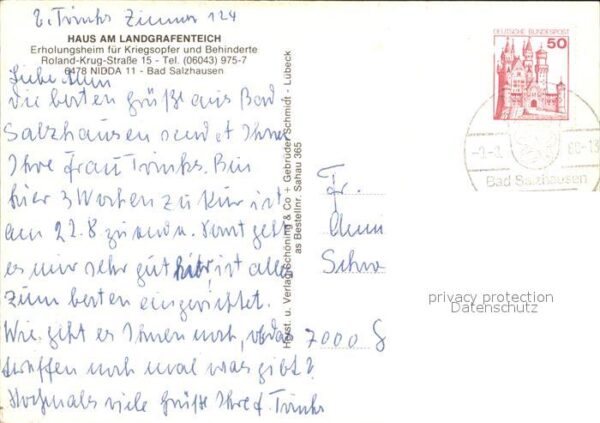 E. Trinks Zimmer 124
HAUS AM LANDGRAFENTEICH
Erholungsheim für Kriegsopfer und Behinderte
Roland-Krug-Straße 15 - Tel. (06043) 975-7
6478 NIDDA 11 - Bad Salzhausen
Liebe
die besten Grüße aus Bad
Salzhausen sendet Ihnen
Ihre Frau Trinks. Bin
hier 3 Wochen zu Kur ist
am 22.8. zu ende. Sonst geht
es mir sehr gut hier ist alles
zum besten eingerichtet.
Wie geht es Ihnen noch, ob das
treffen noch mal was gibt?
Nochmals viele Grüße Ihre f. Trinks
Horst. u. Verlag Schöning & Co + Gebrüder Schmidt - Lübeck
as Bestellnr. Sahau 365
DEUTSCHE BUNDESPOST
50
Bad Salzhausen
Fr.
7000 S
privacy protection
Datenschutz